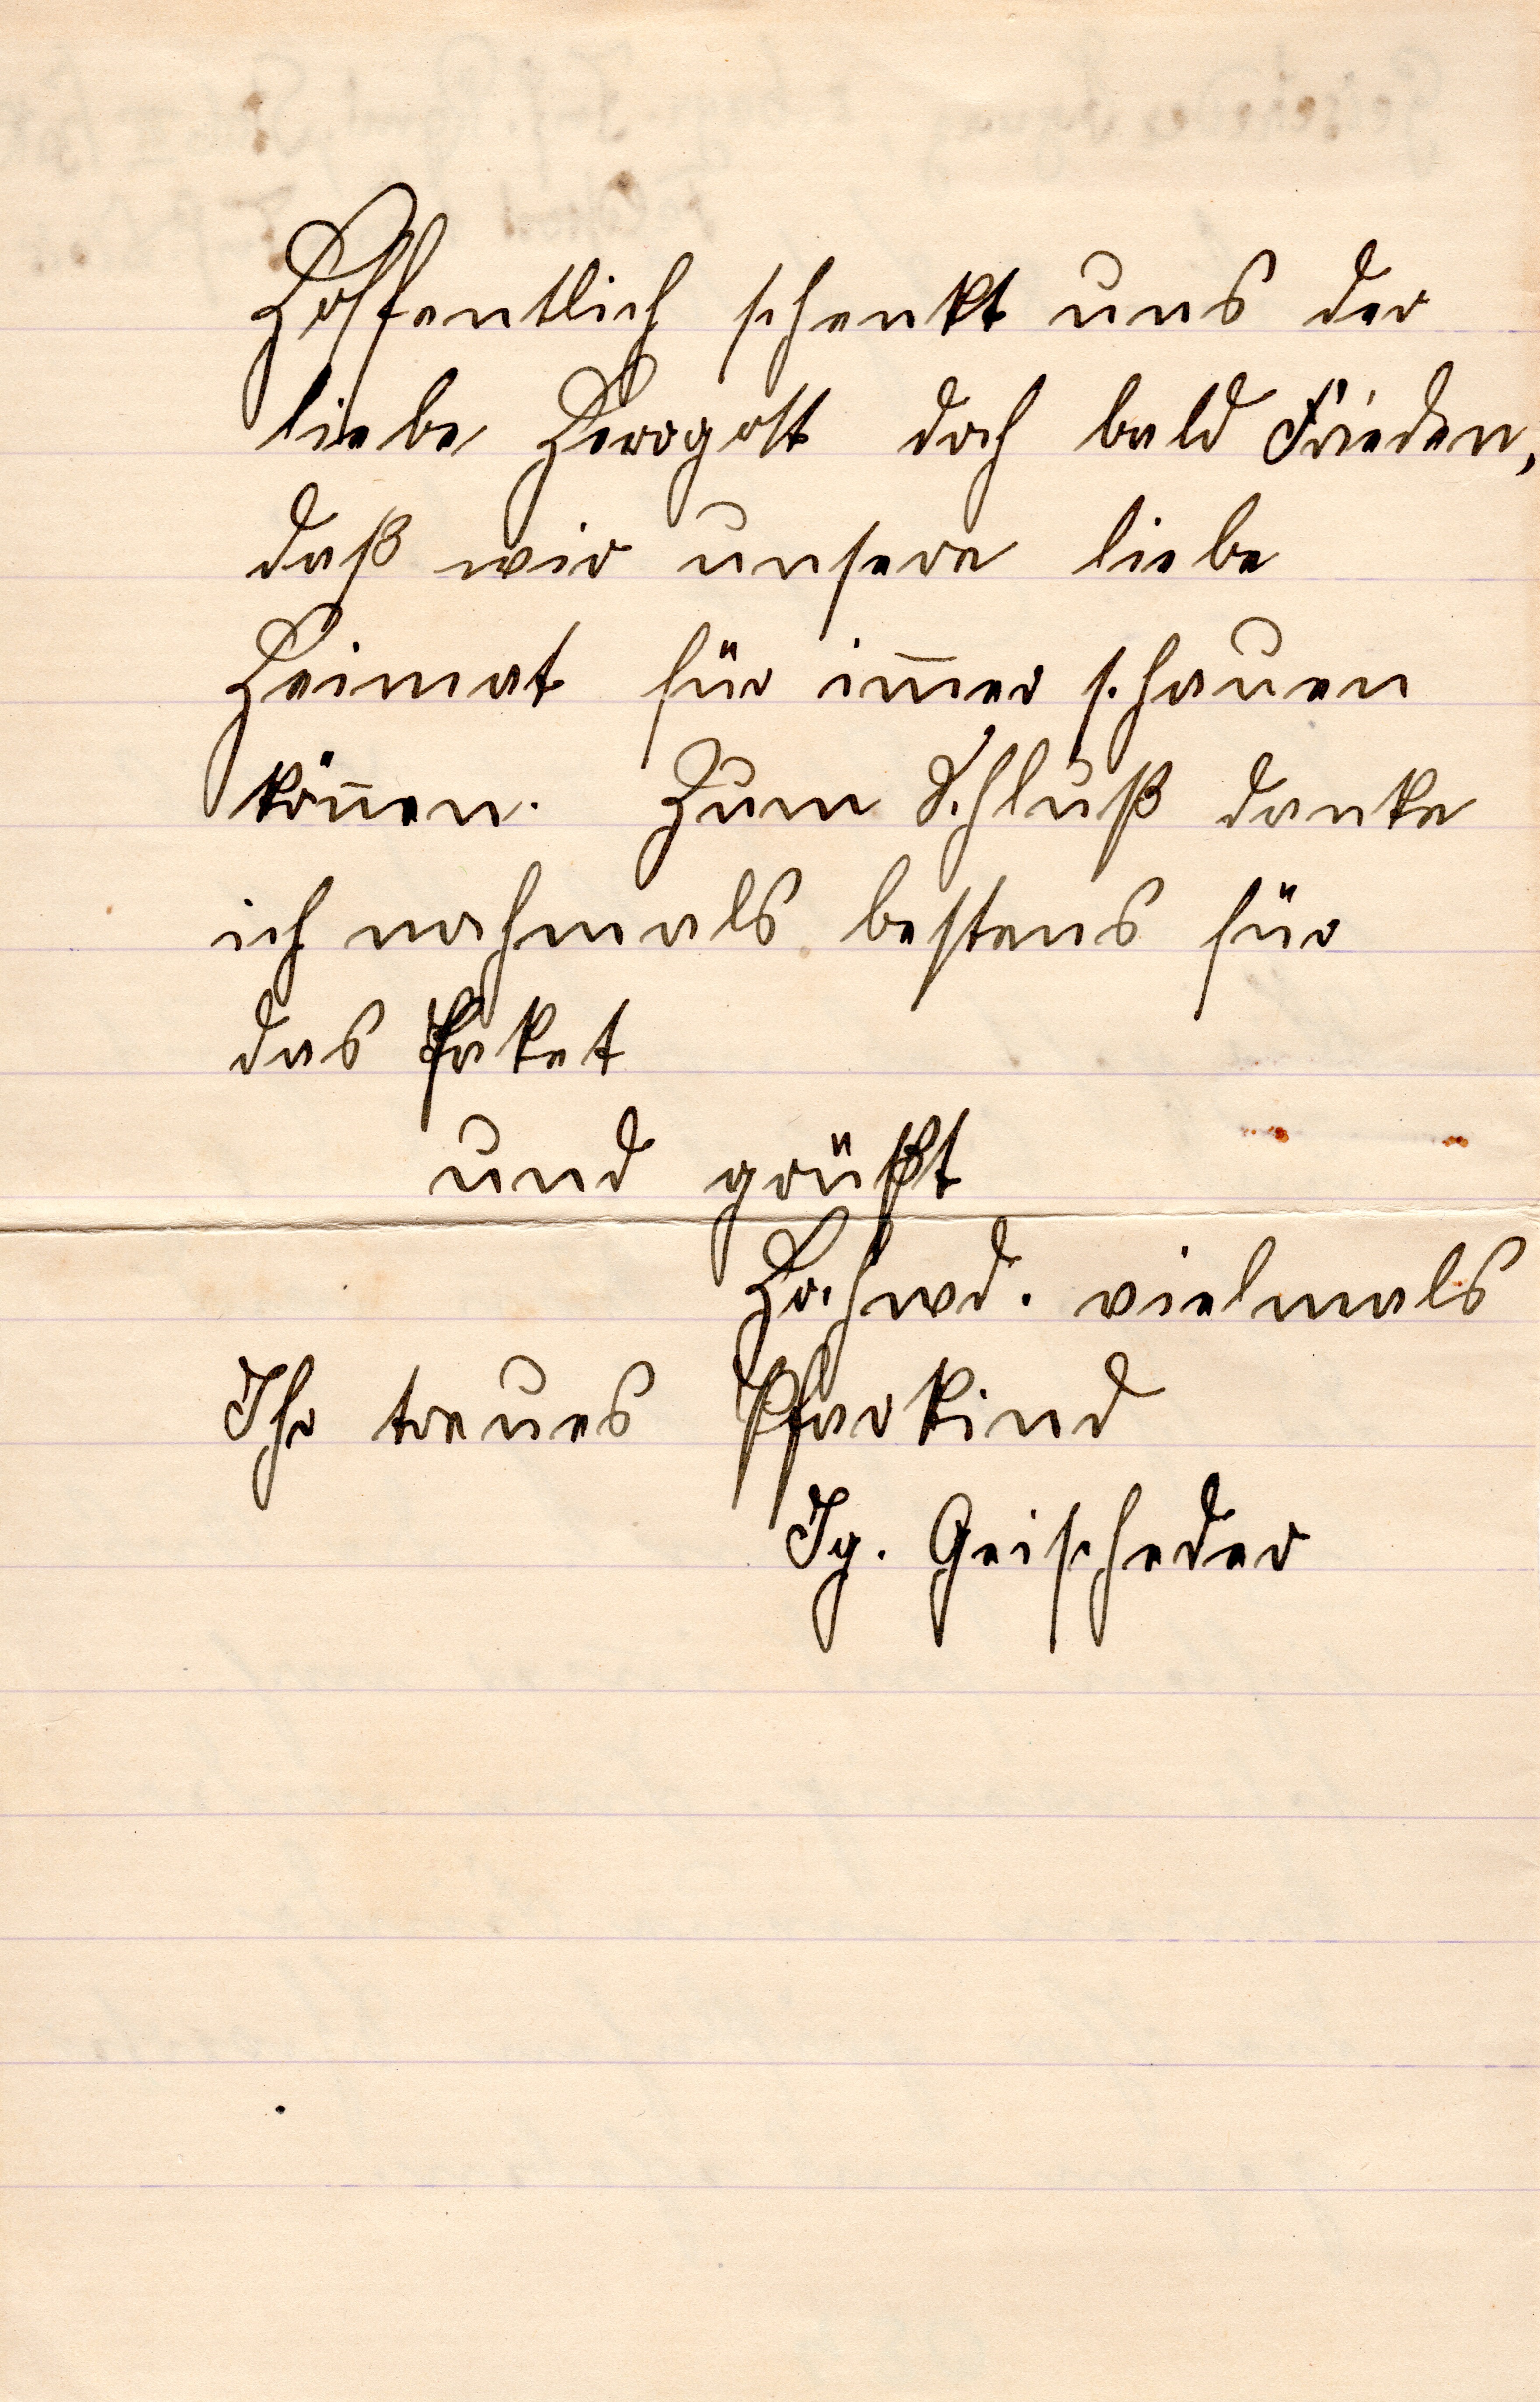 Hoffentlich schenkt uns der
liebe Herrgott doch bald Frieden,
daß wir unsere liebe
Heimat für im̅er schauen
kön̅en. Zum Schluß danke
ich nochmals bestens für
das Paket
und grüßt
Hochwd. vielmals
Ihr treues Pfarrkind
Ig. Geischeder